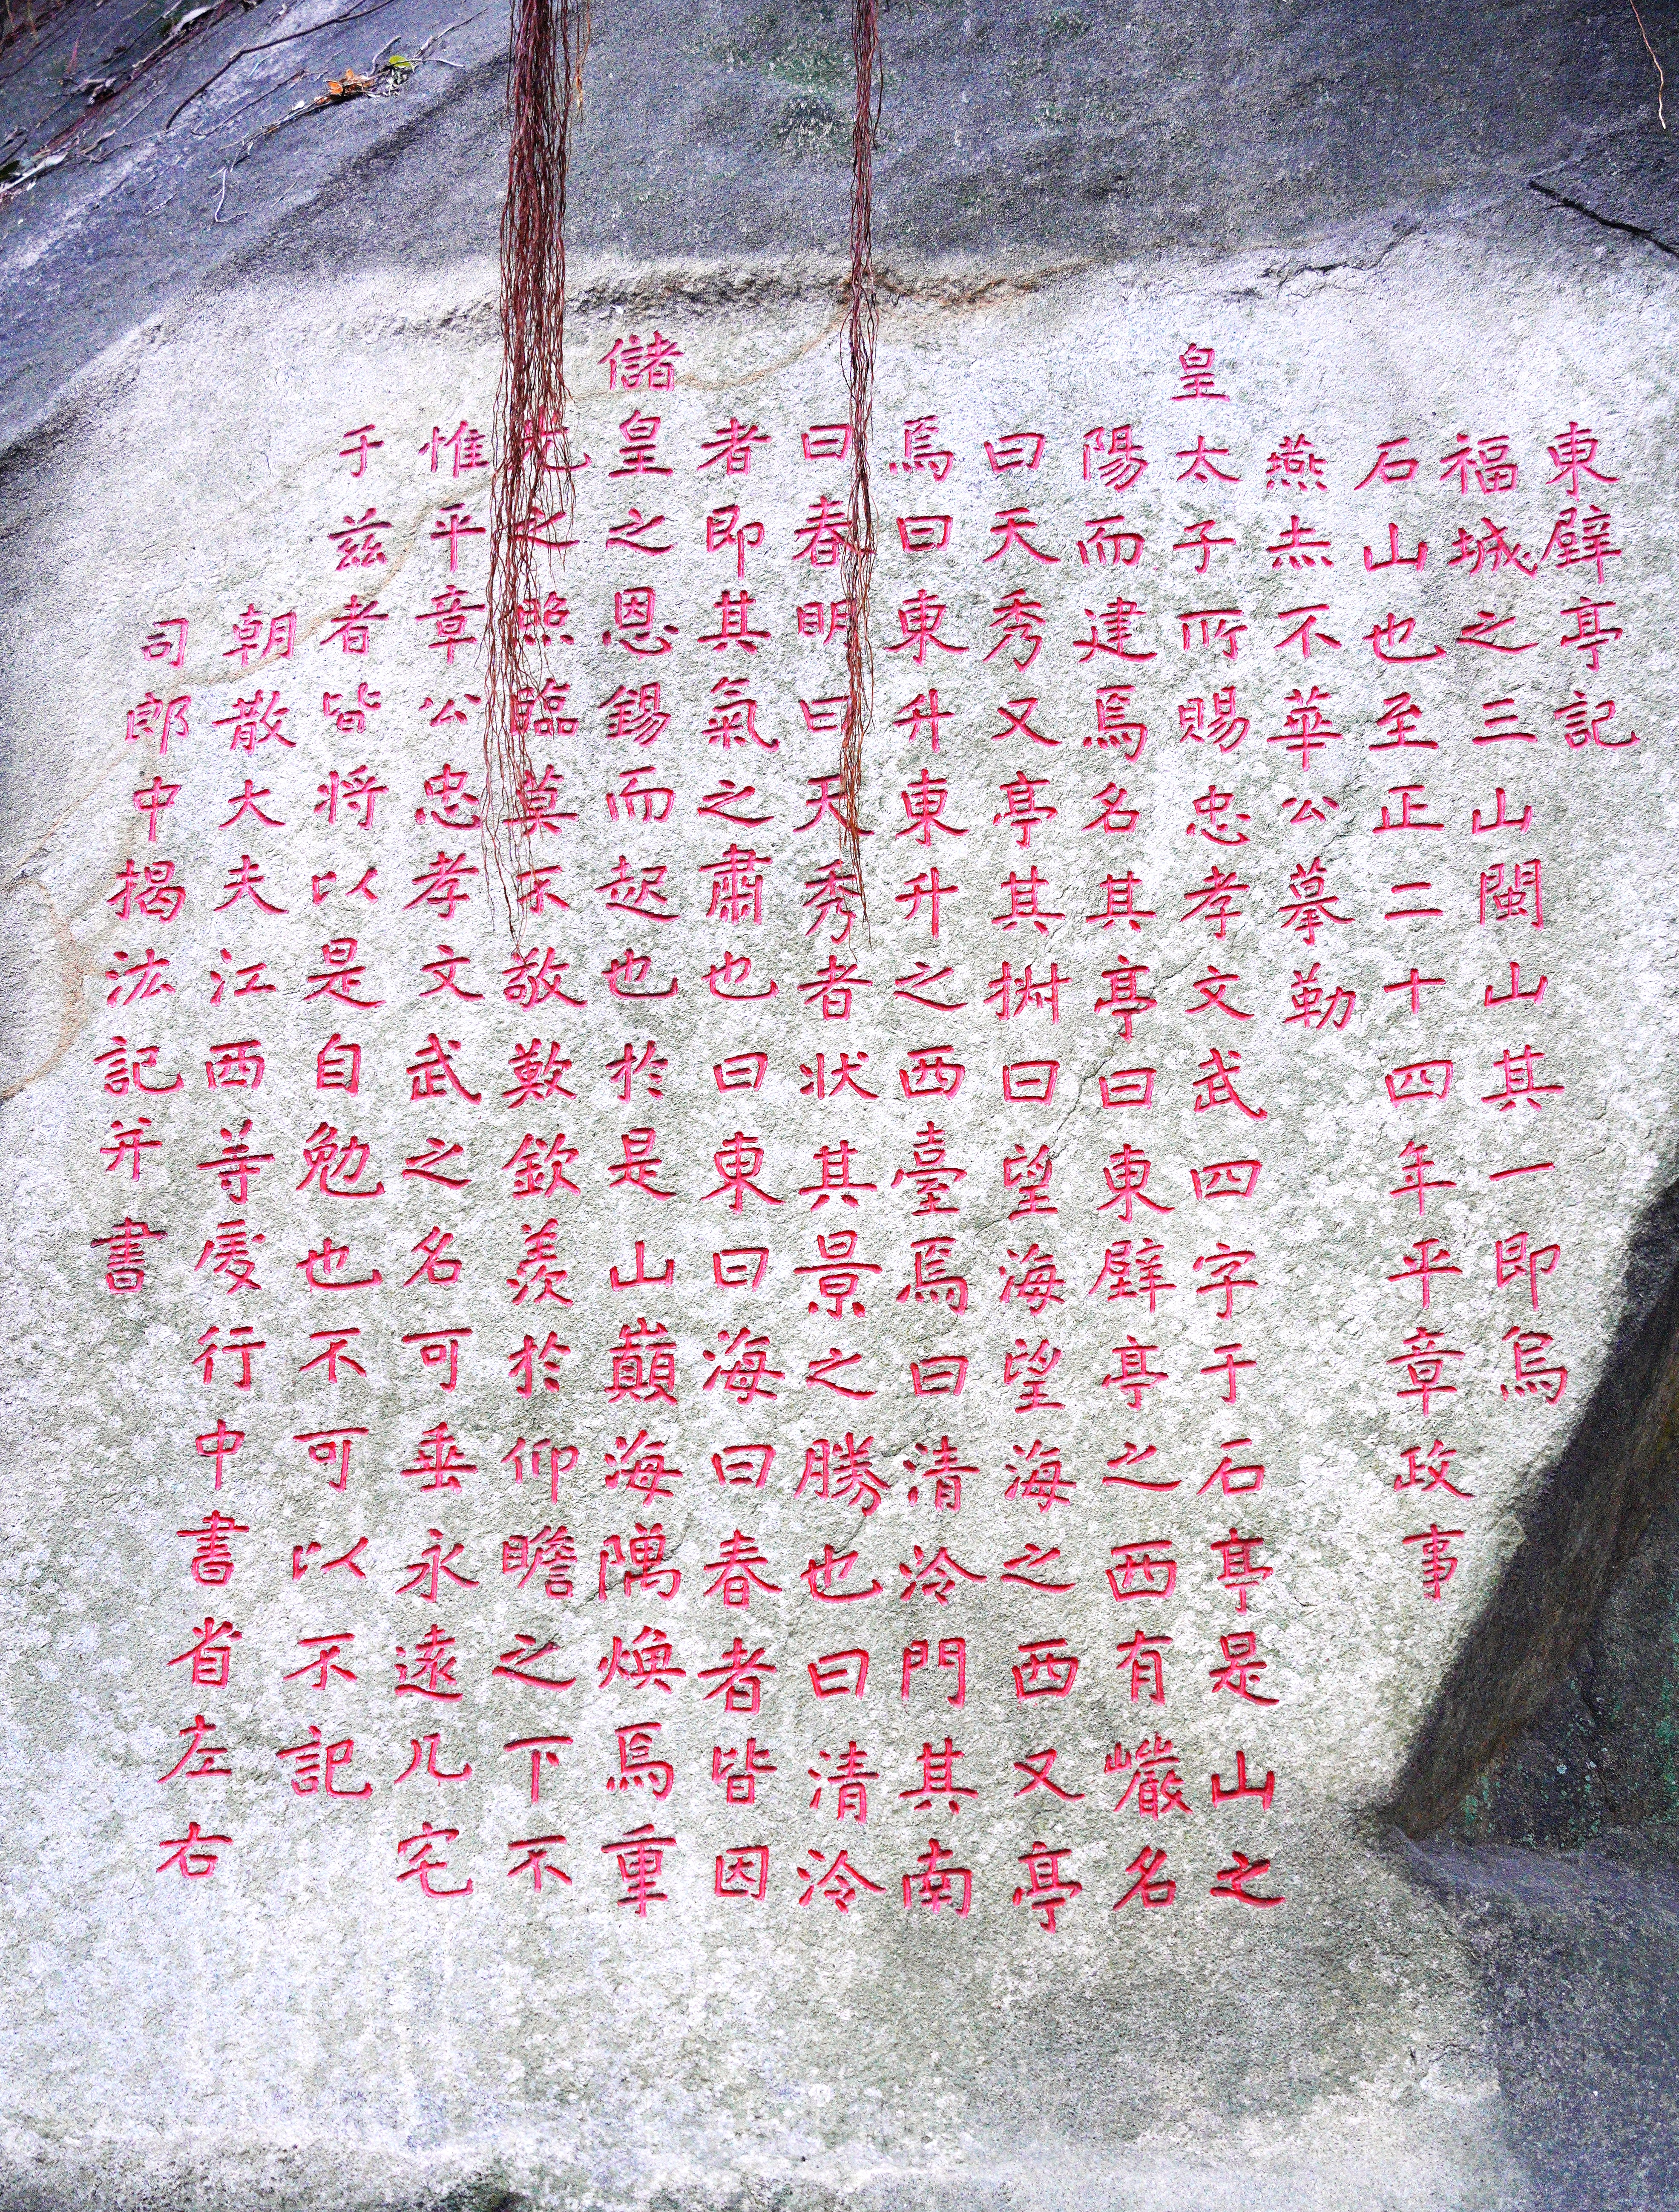 東壁亭記
福城之三山閩山其一即烏
石山也至正二十四年平章政事
燕赤不華公摹勒
皇太子所賜忠孝文武四字于石亭是山之
陽而建焉名其亭曰東壁亭之西有巖名
曰天秀又亭其拊曰望海望海之西又亭
焉曰東升東升之西臺焉曰清泠門其南
曰春明曰天秀者状其景之勝也曰清泠
者即其氣之肅也曰東曰海曰春者皆因
儲皇之恩錫而起也於是山巔海隅煥焉重
光之照臨莫不敬歎欽羨於仰瞻之下不
惟平章公忠孝文武之名可垂永遠凡宅
于兹者皆将以是自勉也不可以不記
朝散大夫江西等處行中書省左右
司郎中揭汯記并書